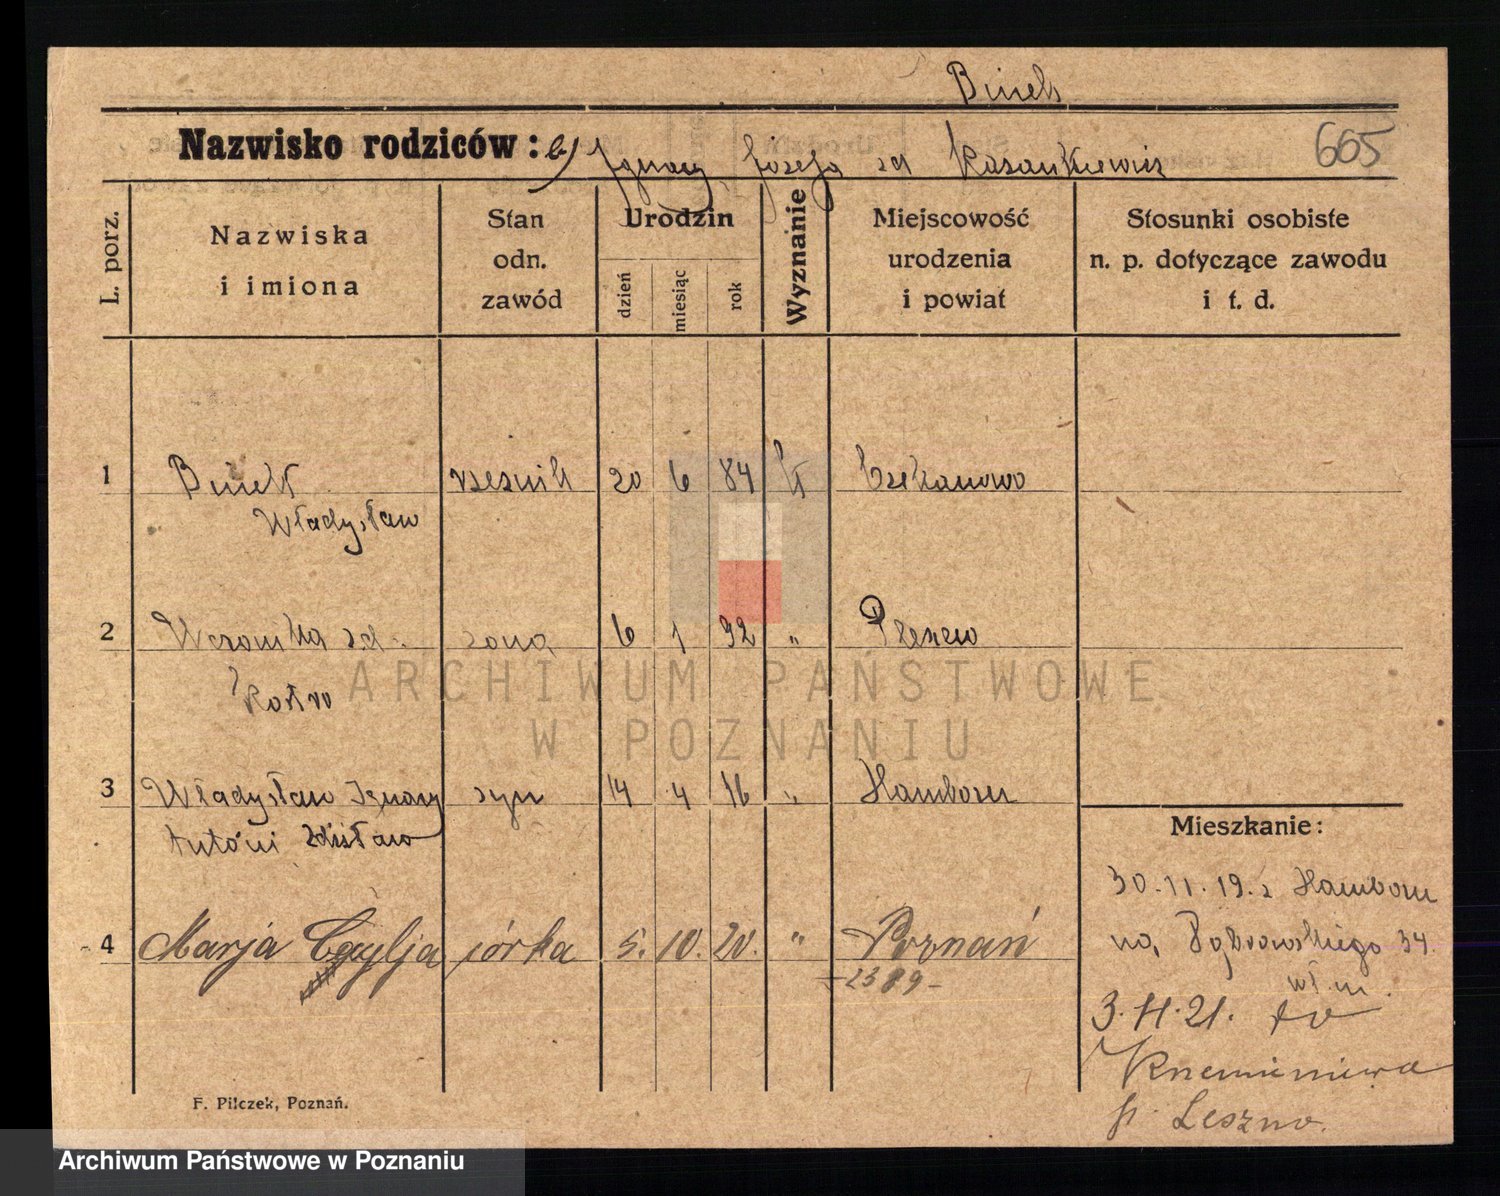 Binek
Nazwisko rodziców: b) Ignacy Józefa zd Kasankiewicz
665
L. porz.
Nazwiska
i imiona
Stan
odn.
zawód
Urodzin
dzień
miesiąc
rok
Wyznanie
Miejscowość
urodzenia
i powiat
Stosunki osobiste
n. p. dotyczące zawodu
i t. d.
1 Binek rzeźnik 20 6 84 k Czekanowo
Władysław
2 Weronika zd. żona 6 1 92 " Pleszew
3 Władysław Ignacy syn 14 4 16 " Hamborn
Antoni Zdisław
4 Marja Cecylja córka 5. 10. 20. " Poznań
-2389-
Mieszkanie:
30.11.19. z Hamborn
na Dąbrowskiego 34.
wł. m.
3.11.21.
p. Leszno.
F. Pilczek, Poznań.
ARCHIWUM PAŃSTWOWE
W POZNANIU
Archiwum Państwowe w Poznaniu